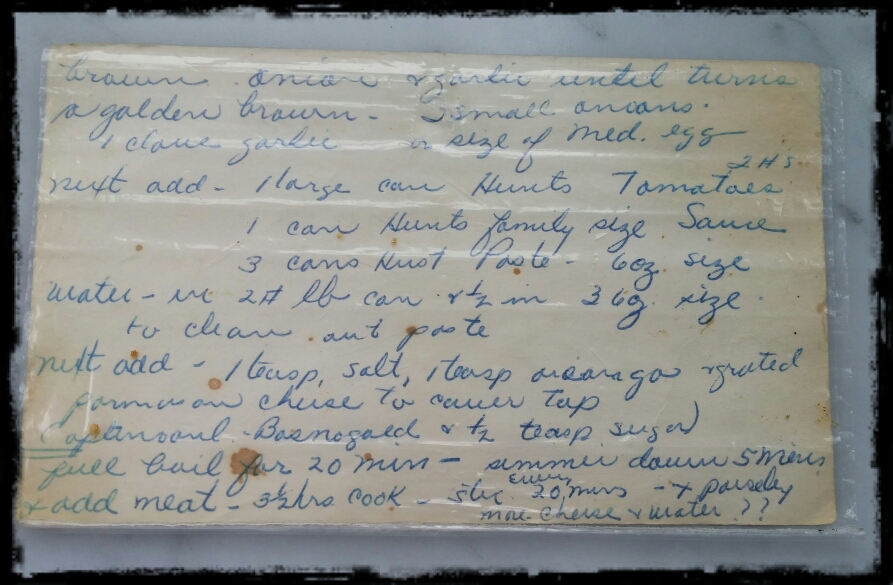 brown onion & garlic until turns
a golden brown - 3 small onions.
1 clove garlic or size of med. egg
2 #'s
next add - 1 large can Hunts Tomatoes
1 can Hunts family size Sauce
3 cans Hust Paste - 6oz size
water - in 2# lb can & ½ in 3 6oz size.
to clean out paste
next add - 1 teasp, salt, 1 teasp & grated
cheese to cover top
½ teasp sugar)
full boil for 20 min - simmer down 5 mins
& add meat - 3½ hrs cook - stir every 20 mins - + parsely
more cheese & water ??